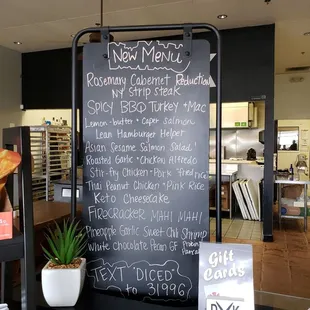 New Menu
Rosemary Cabernet Reduction
NY Strip steak
Spicy BBQ Turkey + Mac
Lemon-butter + caper Salmon
Lean Hamburger Helper
Asian Sesame Salmon Salad!
Roasted Garlic + Chicken Alfredo
Stir-fry Chicken + Pork "fried rice"
Thai Peanut Chicken + Pink Rice
Keto Cheesecake
FIRECRACKER MAHI MAHI
Pineapple Sweet Chili Shrimp
White Chocolate Pecan GF Protein Pancakes
TEXT "DICED"
to 31996
Gift
Cards